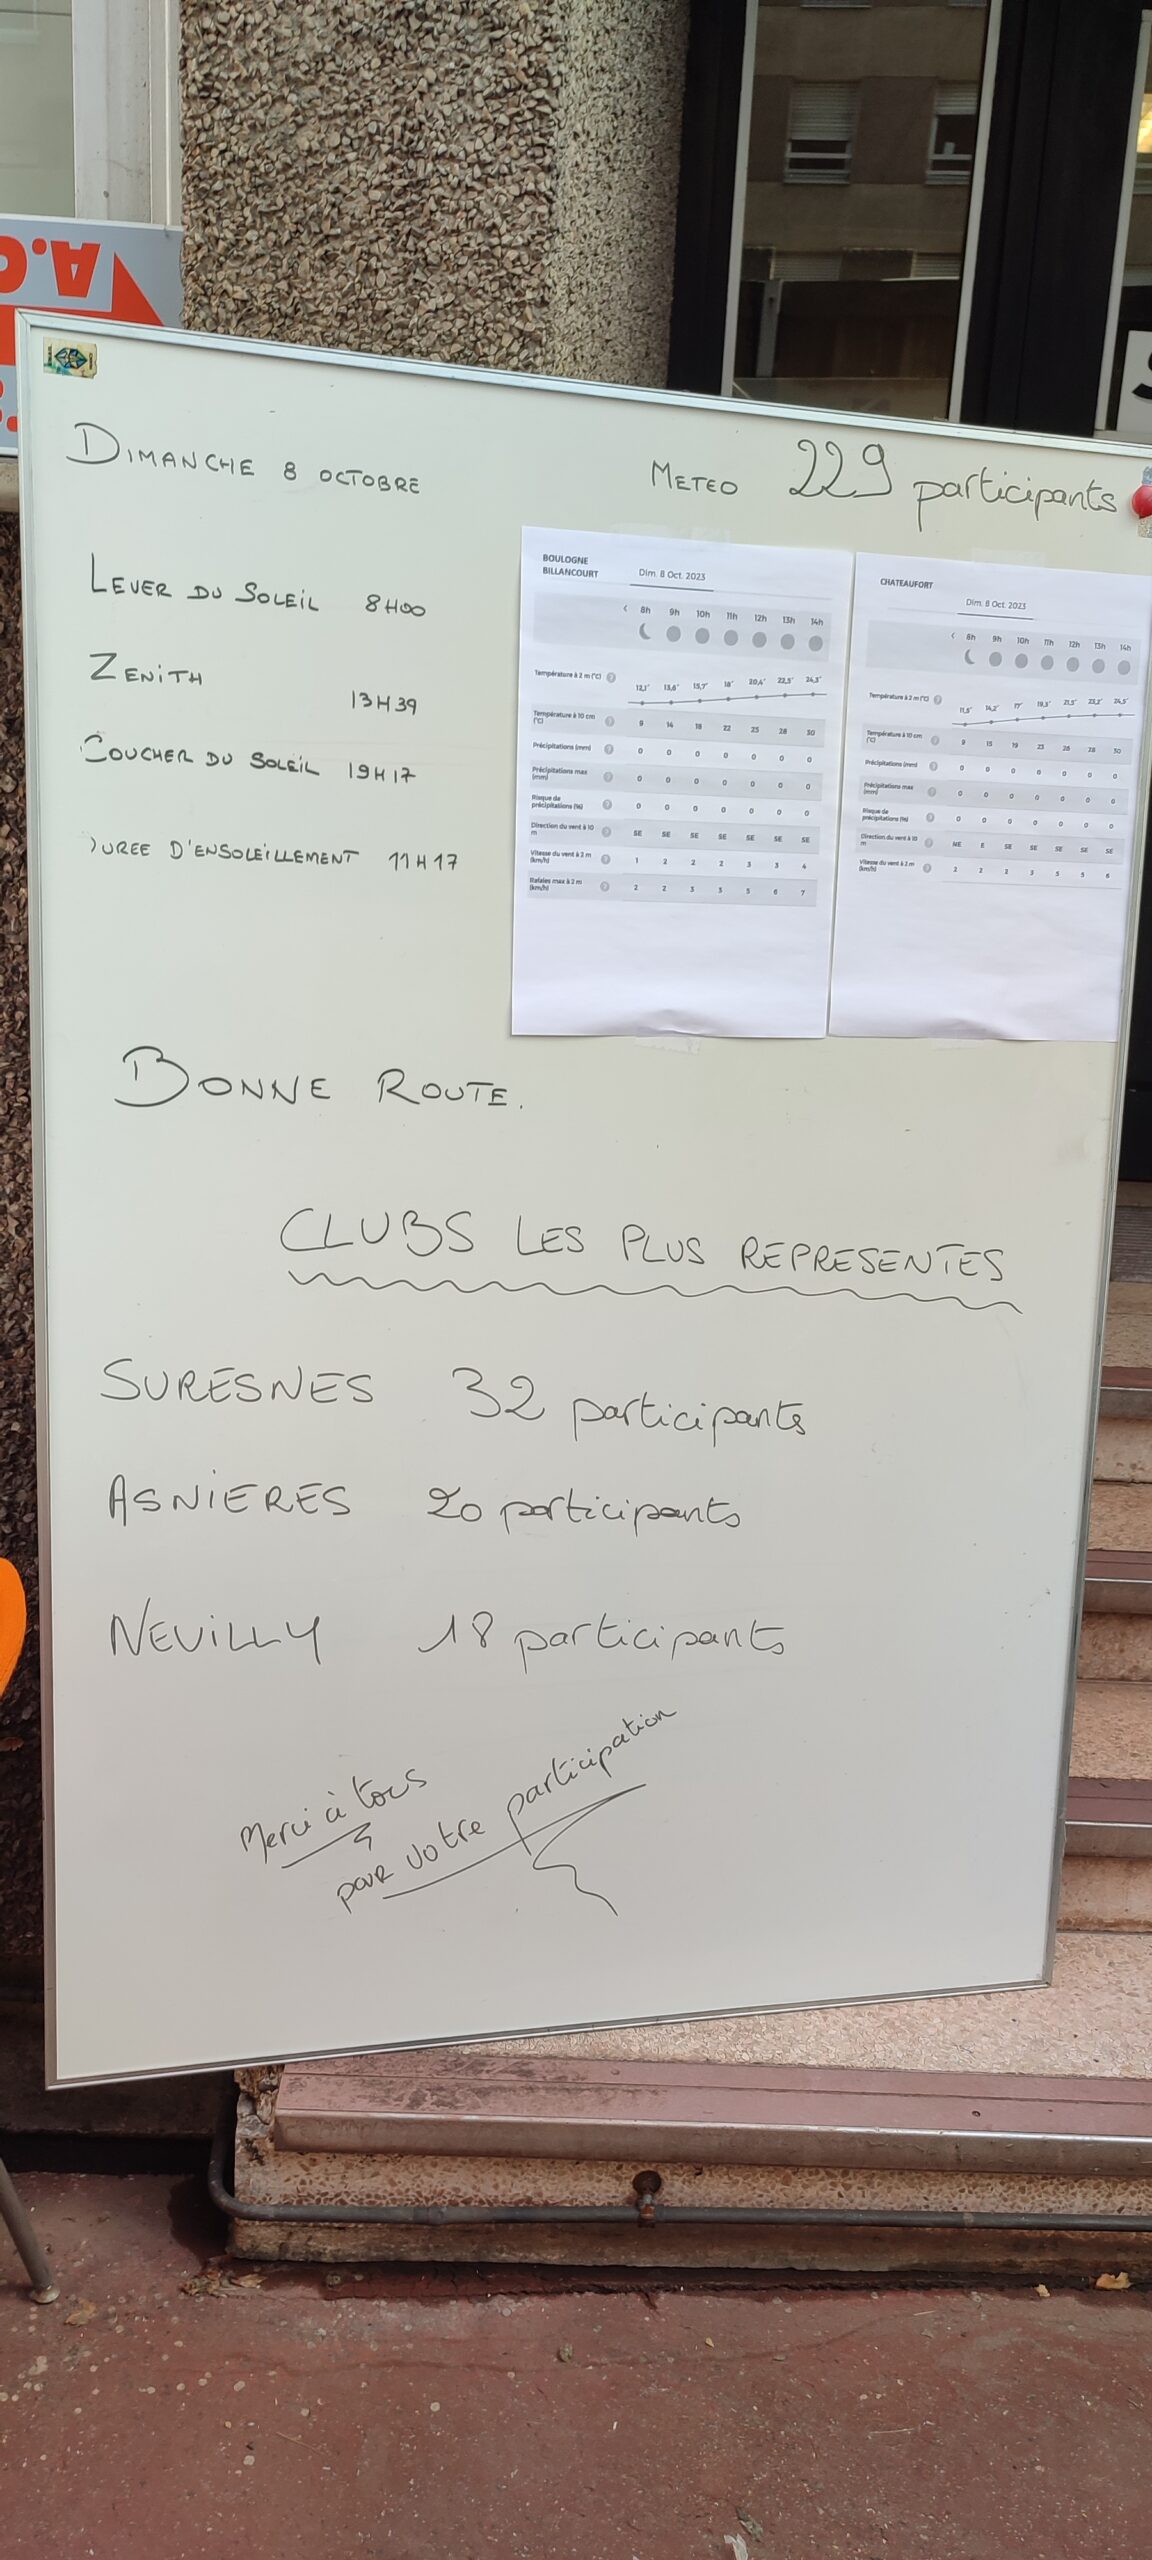 A.C
DIMANCHE 8 OCTOBRE
METEO 229 participants
LEVER DU SOLEIL 8H00
ZENITH 13H39
COUCHER DU SOLEIL 19H17
DUREE D'ENSOLEILLEMENT 11H17
BOULOGNE
BILLANCOURT
Dim. 8 Oct. 2023
< 8h 9h 10h 11h 12h 13h 14h
Température à 2 m (°C) ?
12,1° 13,6° 15,7° 18° 20,4° 22,5° 24,3°
Température à 10 cm (°C) ? 9 14 18 22 25 28 30
Précipitations (mm) ? 0 0 0 0 0 0 0
Précipitations max (mm) ? 0 0 0 0 0 0 0
Risque de précipitations (%) ? 0 0 0 0 0 0 0
Direction du vent à 10 m ? SE SE SE SE SE SE SE
Vitesse du vent à 2 m (km/h) ? 1 2 2 2 3 3 4
Rafales max à 2 m (km/h) ? 2 2 3 3 5 6 7
CHATEAUFORT
Dim. 8 Oct. 2023
< 8h 9h 10h 11h 12h 13h 14h
Température à 2 m (°C) ?
11,5° 14,2° 17° 19,3° 21,5° 23,2° 24,5°
Température à 10 cm (°C) ? 9 15 19 23 26 28 30
Précipitations (mm) ? 0 0 0 0 0 0 0
Précipitations max (mm) ? 0 0 0 0 0 0 0
Risque de précipitations (%) ? 0 0 0 0 0 0 0
Direction du vent à 10 m ? NE E SE SE SE SE SE
Vitesse du vent à 2 m (km/h) ? 2 2 2 3 5 5 6
BONNE ROUTE.
CLUBS LES PLUS REPRESENTES
SURESNES 32 participants
ASNIERES 20 participants
NEUILLY 18 participants
Merci à tous
pour votre participation